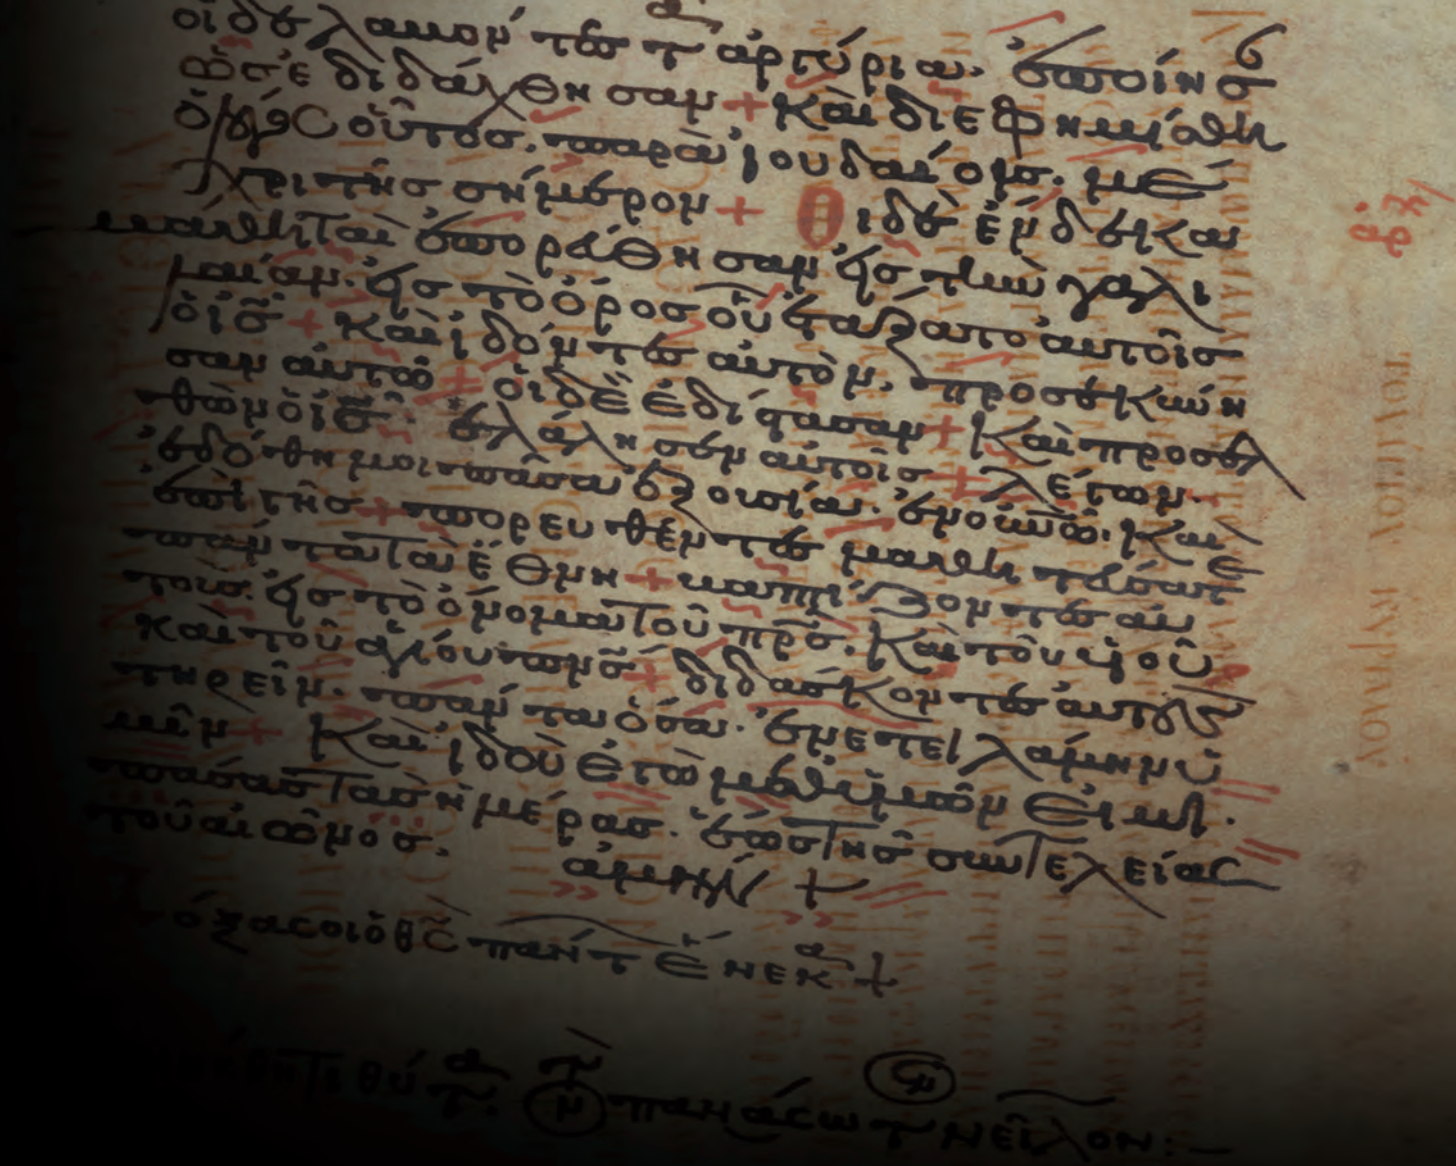 οἱ δὲ λαβόντες τ ἀργύρια· ἐποίησ
ὡς ἐδιδάχθησαν + Καὶ διεφημίσθη
ὁ λόγος οὗτος. παρὰ ἰουδαίοις. μέ
χρι τῆς σήμερον + Οἱ δὲ ἕνδεκα
μαθηταὶ ἐπορεύθησαν εἰς τὴν γαλι
λαίαν. εἰς τὸ ὄρος οὗ ἐτάξατο αὐτοῖς
ὁ ις + Καὶ ἰδόντες αὐτὸν. προσεκύνη
σαν αὐτῶ + οἱ δὲ ἐδίστασαν + Καὶ προσελ
θὼν ὁ ις ἐλάλησεν αὐτοῖς + λέγων.
ἐδόθη μοι πᾶσα ἐξουσία. ἐν οὐνῶ. Καὶ
ἐπὶ γῆς + πορευθέντες μαθητεύσατε
πάντα τὰ ἔθνη + βαπτίζοντες αὐ
τοὺς. εἰς τὸ ὄνομα τοῦ πρς. Καὶ τοῦ υἱοῦ
καὶ τοῦ ἁγίου πνς + διδάσκοντες αὐτοὺς
τηρεῖν. πάντα ὅσα. ἐνετειλάμην ὑ
μῖν + Καὶ ἰδοὺ ἐγὼ μεθ' ὑμῶν εἰμι.
πάσας τὰς ἡμέρας. ἕως τῆς συντελείας
τοῦ αἰῶνος.
ἀμήν +
όξα σοι ὁ θς πάντ ἕνεκ +